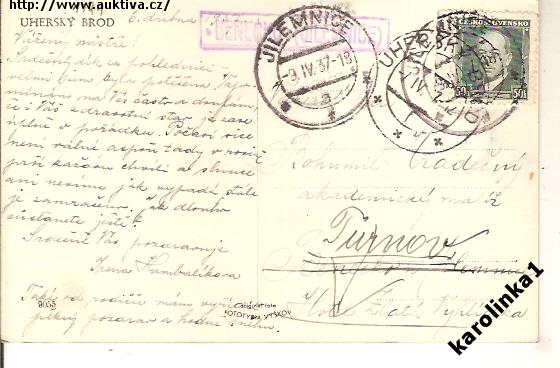 www.auktiva.cz
UHERSKÝ BROD
6. dubna
Vážený mistře!
Srdečný dík za pohlednici
velmi jsem byla potěšena. Vzpo
mínám na Vás často a doufám,
že Váš zdravotní stav je zase
úplně v pořádku. Počasí více
není stálé aspoň tady v rovině
prší každou chvíli a slunce
ani nevíme jak vypadá stále
je zamračeno. Jak dlouho
zůstanete ještě?
Srdečně Vás pozdravuje
Irena Hambalíkova
Také od rodičů mám vyřídit
pěkný pozdrav a hodně sněhu.
JILEMNICE
9.IV.37-18
UHERSKÝ BROD
ČESKOSLOVENSKO
50 50h
Bohumil
akademický malíř
Turnov
9055
Originál foto
FOTOTYPIA VYŠKOV
karolinka1